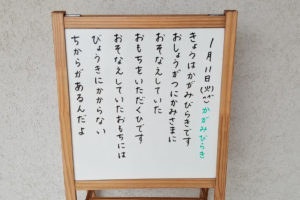 1月11日(火)かがみびらき
きょうはかがみびらきです
おしょうがつにかみさまに
おそなえしていた
おもちをいただくひです
おそなえしていたおもちには
びょうきにかからない
ちからがあるんだよ